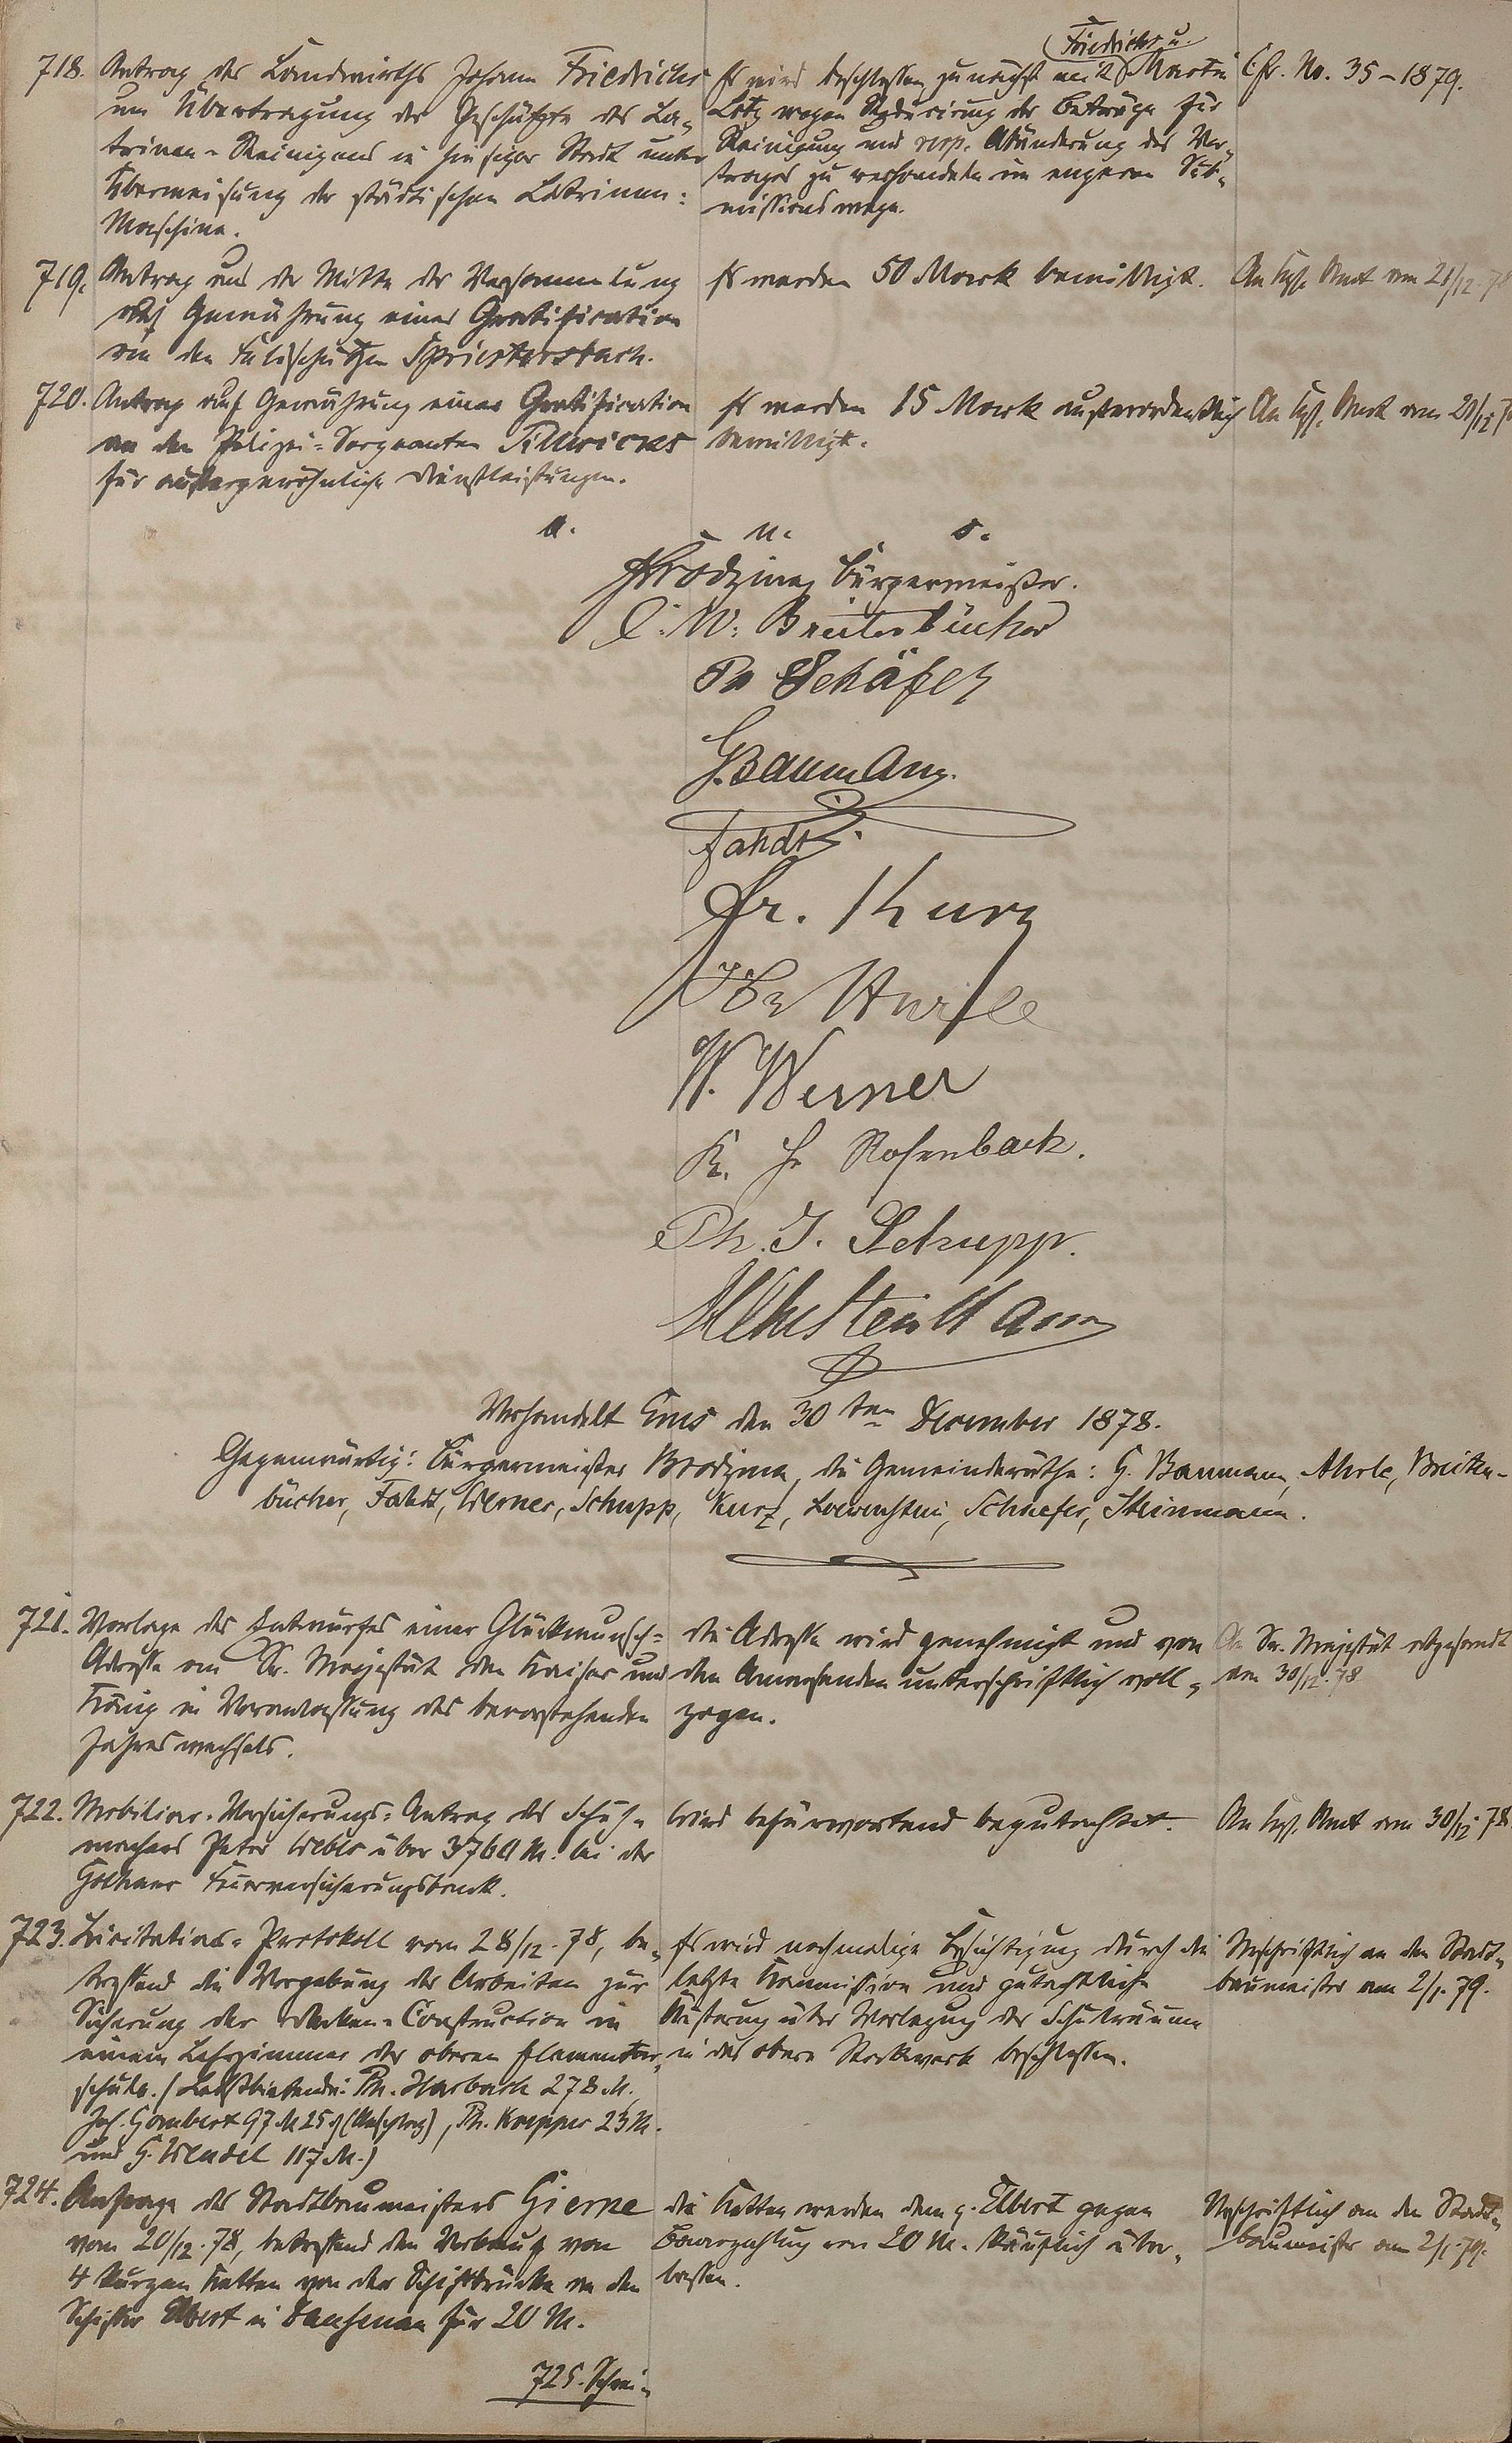 718. Antrag des Landwirths Johann Friedrichs
um Übertragung der Geschäfte des La-
trinen-Reinigens in hiesiger Stadt unter
Überweisung der städtischen Latrinen-
Maschine.
Es wird beschlossen zunächst mit (Friedrichs u. Martin
Lotz wegen Reducirung der Beträge für
Reinigung und resp. Abänderung des Ver-
trages zu verhandeln im engeren Sub-
missionswege.
Cfr. No. 35-1879.
719. Antrag aus der Mitte der Versammlung
auf Gewährung einer Gratification
an den Feldschützen Spriestersbach.
Es werden 50 Mark bewilligt.
An Kgl. Amt am 21/12.78
720. Antrag auf Gewährung einer Gratification
an den Polizei-Sergeanten
für außergewöhnliche Dienstleistungen.
Es werden 15 Mark außerordentlich
bewilligt.
An Kgl. Amt am 21/12.78
a. u. s.
Brodzina Bürgermeister.
C. W. Breitenbücher
Schäfer
G. Baumann.
Fahdt.
Fr. Kurz
W. Werner
Rosenbach.
Ph. J. Schupp.
Steinmann
Verhandelt Ems den 30ten December 1878.
Gegenwärtig: Bürgermeister Brodzina, die Gemeinderäthe: G. Baumann, Ahrle, Breiten-
bücher, Fahdt, Werner, Schupp, Kurz, Loewenstein, Schaefer, Steinmann.
721. Vorlage des Entwurfes einer Glückwunsch-
Adresse an Sr. Majestät den Kaiser und
König in Veranlassung des bevorstehenden
Jahreswechsels.
Die Adresse wird genehmigt und von
den Anwesenden unterschriftlich voll-
zogen.
An Sr. Majestät abgesandt
am 30/12.78
722. Mobiliar-Versicherungs-Antrag des Schuh-
machers Peter Weber über 3760 M. bei der
Gothaer Feuerversicherungsbank.
Wird befürwortend begutachtet.
An Kgl. Amt am 30/12.78
723. Licitations-Protokoll vom 28/12.78, be-
treffend die Vergebung der Arbeiten zur
Sicherung der Decken-Construction in
einem Lehrzimmer der oberen Elementar-
schule. (Letztbietende: Ph. Harbach 278 M.,
Joh. Gombert 97 M 25 ₰ (Aufschlag), Ph. Knepper 23 M.
und G. Wendel 117 M.)
Es wird nochmalige Besichtigung durch die
letzte Kommission und gutachtliche
Äußerung über Verlegung der Schulräume
in das obere Stockwerk beschlossen.
Abschriftlich an den Stadt-
baumeister am 2/1.79.
724. Anfrage des Stadtbaumeisters Gierse
vom 20/12.78, betreffend den Verkauf von
4 kurzen Ketten von der Schiffbrücke an den
Schiffer Elbert in Dausenau für 20 M.
Die Ketten werden dem p. Elbert gegen
Baarzahlung von 20 M. käuflich über-
lassen.
Abschriftlich an den Stadt-
baumeister am 2/1.79.
725. Schrei-